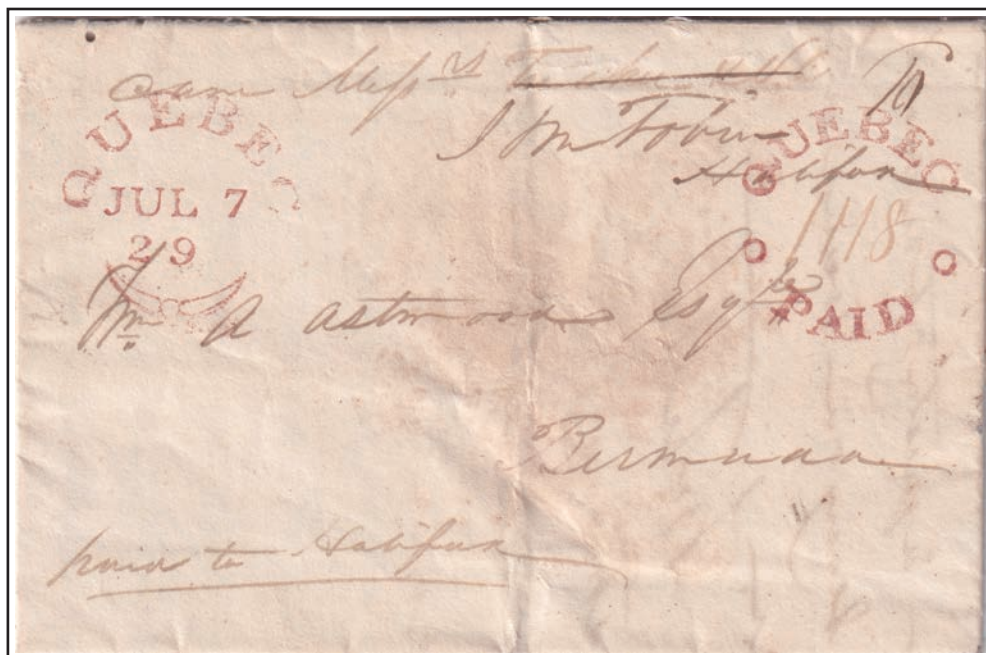 care Messrs
J M Tobin
Halifax
QUEBEC
JUL 7
29
QUEBEC
1/18
PAID
Wm A Astwood Esqre
Bermuda
paid to Halifax